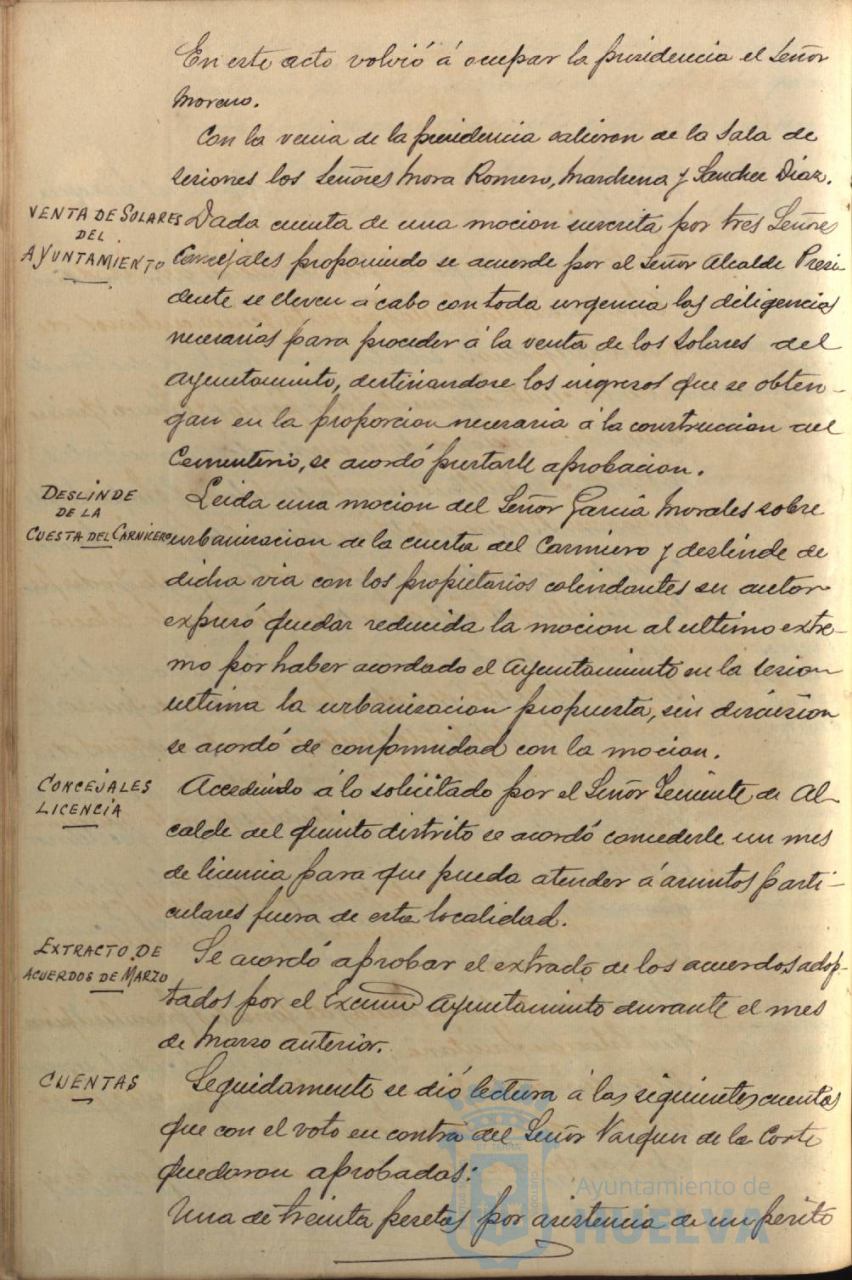 En este acto volvió á ocupar la presidencia el Señor
Moreno.
Con la venia de la presidencia salieron de la Sala de
sesiones los Señores Mora Romero, Marchena y Sanchez Díaz.
VENTA DE SOLARES
DEL
AYUNTAMIENTO
Dada cuenta de una mocion suscrita por tres Señores
Concejales proponiendo se acuerde por el Señor Alcalde Presi-
dente se lleven á cabo con toda urgencia las diligencias
necesarias para proceder á la venta de los solares del
Ayuntamiento, destinandose los ingresos que se obten-
gan en la proporcion necesaria á la construccion del
Cementerio, se acordó prestarle aprobacion.
DESLINDE
DE LA
CUESTA DEL CARNICERO
Leida una mocion del Señor García Morales sobre
urbanizacion de la cuesta del Carnicero y deslinde de
dicha via con los propietarios colindantes su autor
expresó quedar reducida la mocion al ultimo extre-
mo por haber acordado el Ayuntamiento en la sesion
ultima la urbanizacion propuesta, sin discusion
se acordó de conformidad con la mocion.
CONCEJALES
LICENCIA
Accediendo á lo solicitado por el Señor Teniente de Al-
calde del quinto distrito se acordó concederle un mes
de licencia para que pueda atender á asuntos parti-
culares fuera de esta localidad.
EXTRACTO DE
ACUERDOS DE MARZO
Se acordó aprobar el extracto de los acuerdos adop-
tados por el Excmo Ayuntamiento durante el mes
de Marzo anterior.
CUENTAS
Seguidamente se dió lectura á las siguientes cuentas
que con el voto en contra del Señor Vazquez de la Corte
quedaron aprobadas:
Una de treinta pesetas por asistencia de un perito
Ayuntamiento de
HUELVA